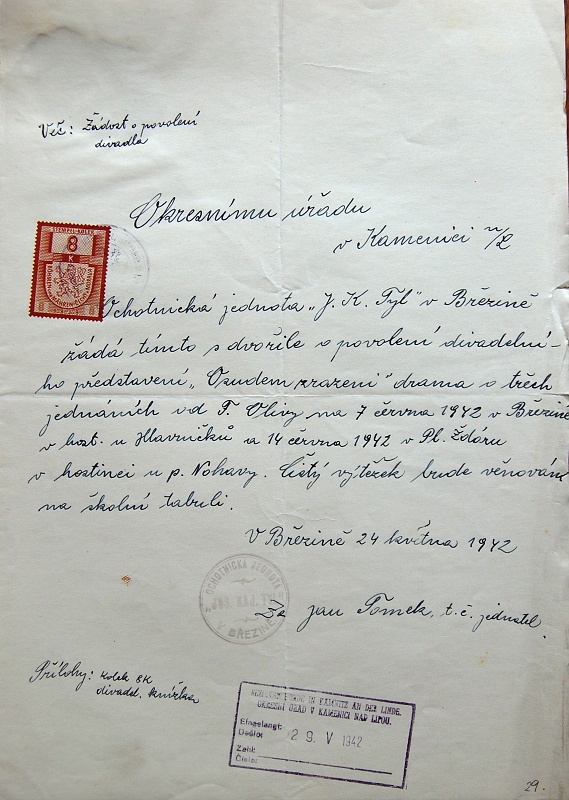 Věc: Žádost o povolení
divadla
Okresnímu úřadu
v Kamenici n/L
STEMPEL-KOLEK
8
K
BÖHMEN-MÄHREN ČECHY-MORAVA
Ochotnická jednota „J. K. Tyl" v Březině
žádá tímto s dvořile o povolení divadelní-
ho představení „Osudem zrazeni" drama o třech
jednáních vd F. Olivy na 7 června 1942 v Březině
v host. u Hlavničků a 14 června 1942 v Pl. Ždáru
v hostinci u p. Nohavy. Čistý výtěžek bude věnován
na školní tabuli.
V Březině 24 května 1942
OCHOTNICKÁ JEDNOTA
„JOS. KAJ. TYL"
V BŘEZINĚ
Za Jan Tomek, t. č. jednatel.
Přílohy: kolek 8K
divadel. knížka
IN KAMNITZ AN DER LINDE.
OKRESNÍ ÚŘAD V KAMENICI NAD LIPOU.
Eingelangt:
Došlo:
29 V 1942
Zahl:
Číslo:
29.